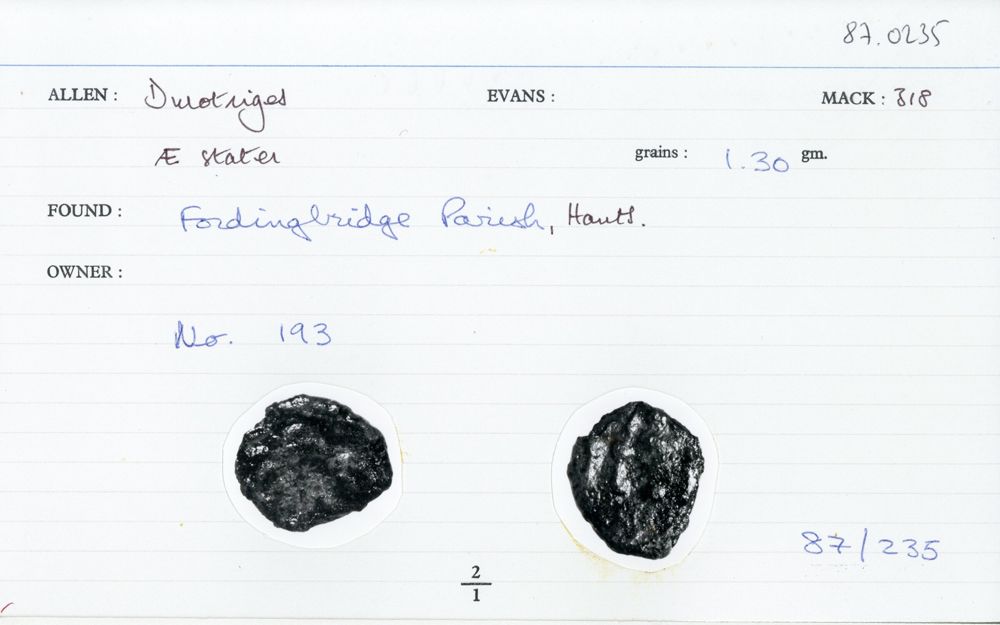 87.0235
ALLEN : Durotriges EVANS : MACK : 318
Æ stater grains : 1.30 gm.
FOUND : Fordingbridge Parish, Hants.
OWNER :
No. 193
87/235
2
1